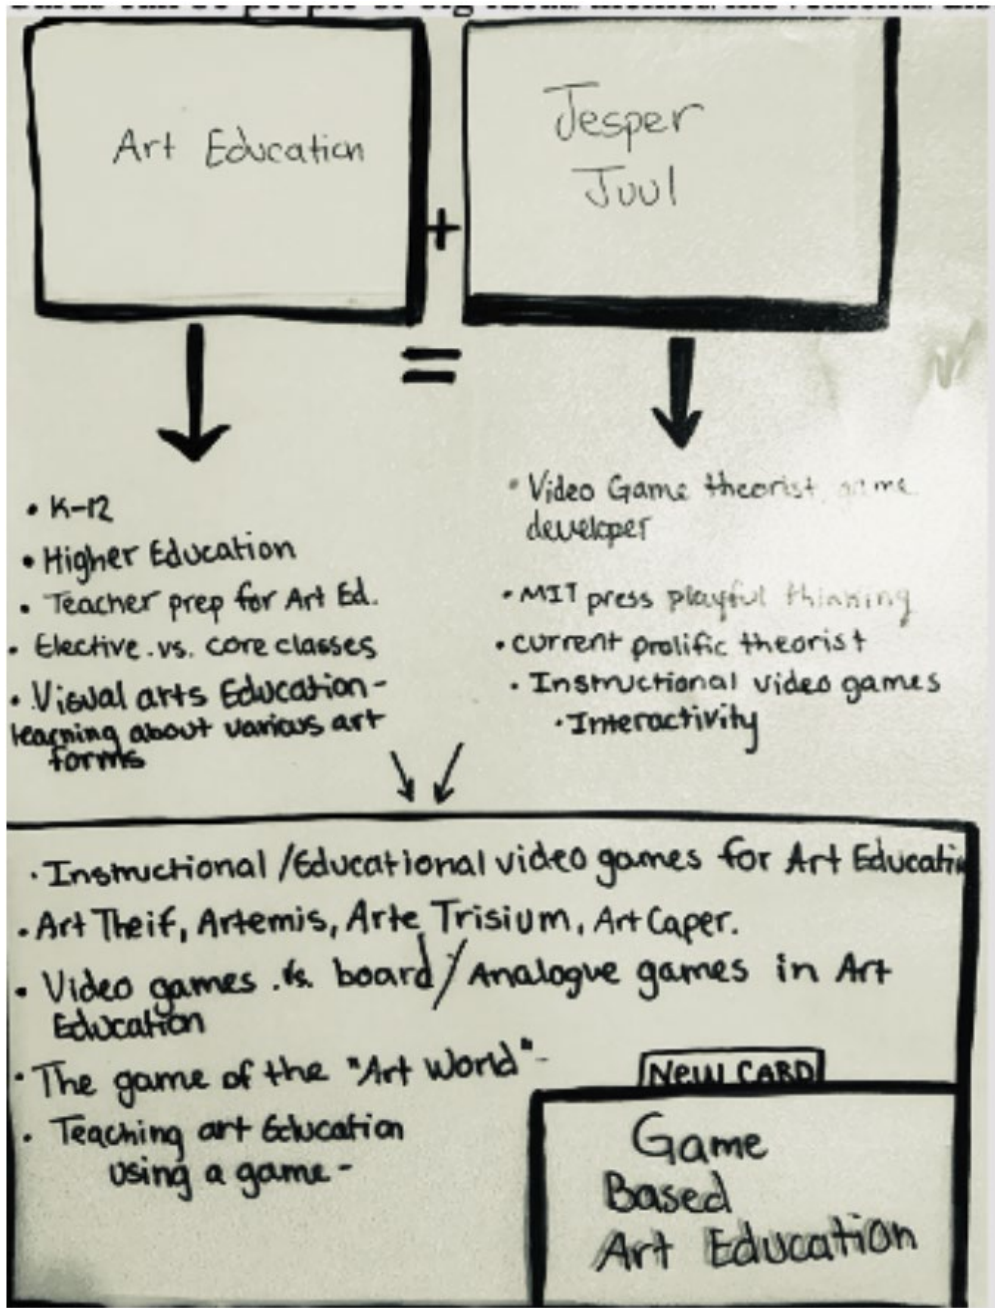 Art Education
+
Jesper
Juul
=
• K-12
• Higher Education
• Teacher prep for Art Ed.
• Elective .vs. core classes
• Visual arts Education-
learning about various art
forms
• Video Game theorist, game
developer
• MIT press playful thinking
• current prolific theorist
• Instructional video games
• Interactivity
• Instructional/Educational video games for Art Educatio
• Art Theif, Artemis, Arte Trisium, Art Caper.
• Video games .vs. board/Analogue games in Art
Education
• The game of the "Art World"-
• Teaching art Education
using a game-
NEW CARD
Game
Based
Art Education